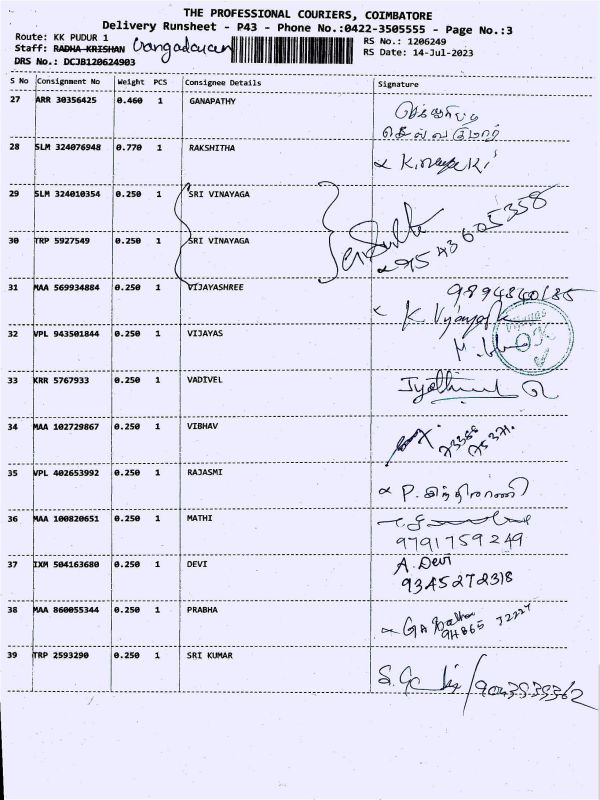 THE PROFESSIONAL COURIERS, COIMBATORE
Delivery Runsheet - P43 - Phone No.:0422-3505555 - Page No.:3
Route: KK PUDUR 1
RS No.: 1206249
Staff: RADHA KRISHAN
RS Date: 14-Jul-2023
DRS No.: DCJB120624903
S No Consignment No Weight PCS Consignee Details Signature
27 ARR 30356425 0.460 1 GANAPATHY
28 SLM 324076948 0.770 1 RAKSHITHA
29 SLM 324010354 0.250 1 SRI VINAYAGA
30 TRP 5927549 0.250 1 SRI VINAYAGA
9543605358
31 MAA 569934884 0.250 1 VIJAYASHREE
32 VPL 943501844 0.250 1 VIJAYAS
33 KRR 5767933 0.250 1 VADIVEL
34 MAA 102729867 0.250 1 VIBHAV
35 VPL 402653992 0.250 1 RAJASMI
36 MAA 100820651 0.250 1 MATHI
9791759249
37 IXM 504163680 0.250 1 DEVI A. Devi
9345272318
38 MAA 860055344 0.250 1 PRABHA
39 TRP 2593290 0.250 1 SRI KUMAR